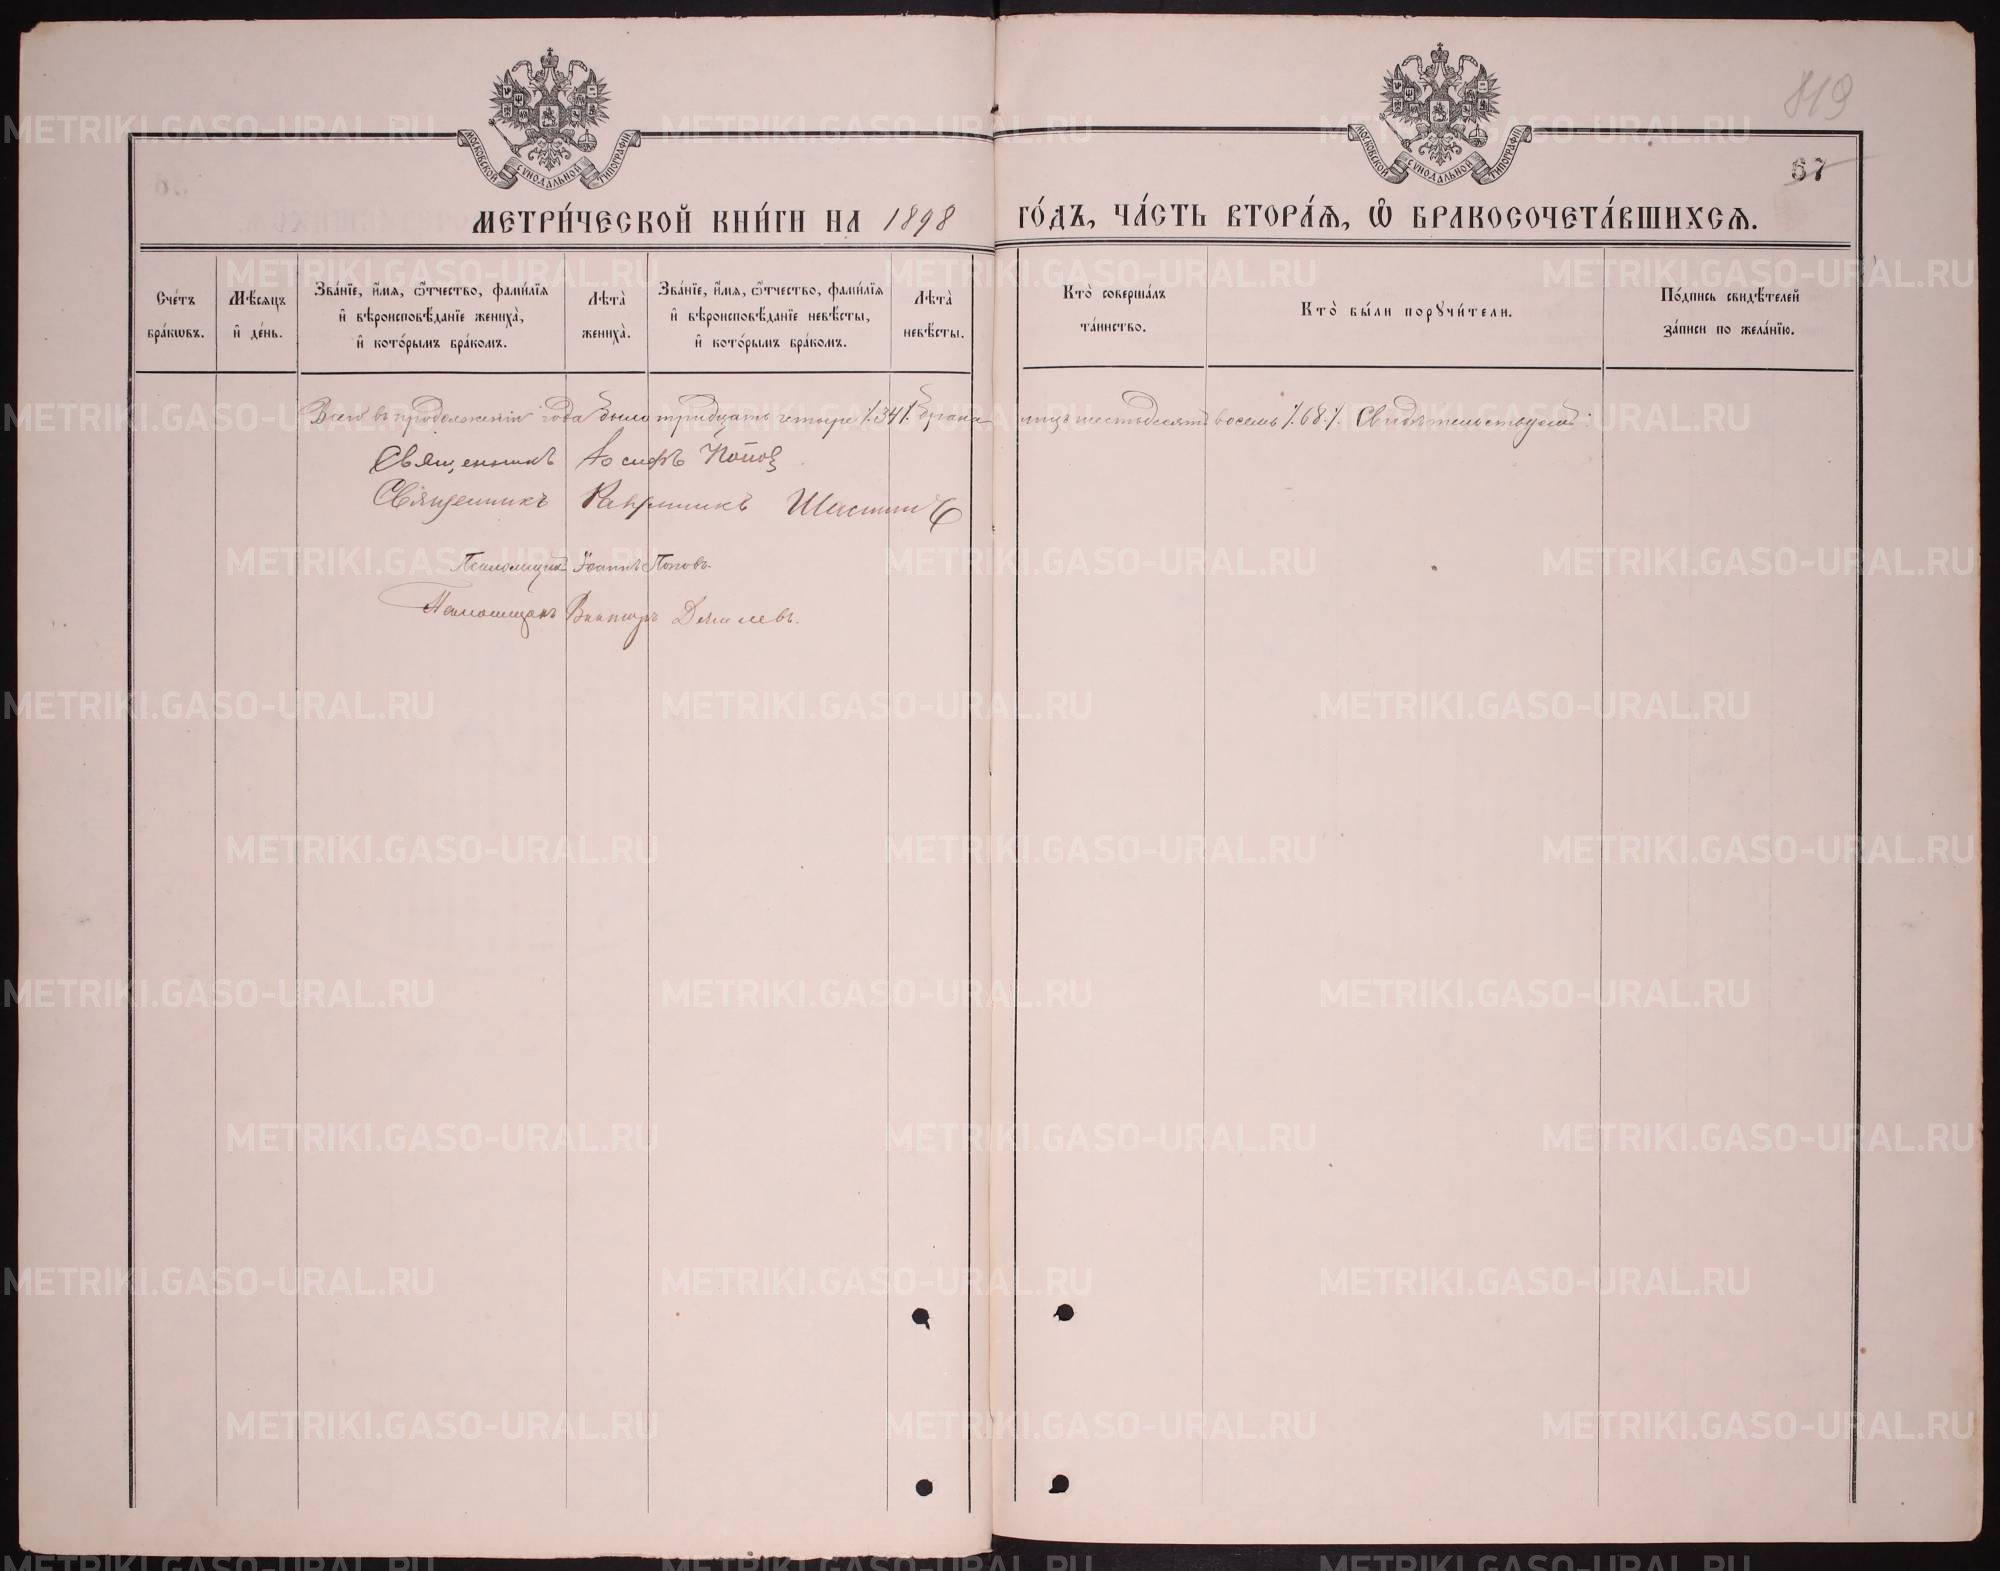 819
67
МОСКОВСКОЙ СУНОДАЛЬНОЙ ТИПОГРАФІИ
МОСКОВСКОЙ СУНОДАЛЬНОЙ ТИПОГРАФІИ
МЕТРИ́ЧЕСКОЙ КНИ́ГИ НА 1898 ГО́ДЪ, ЧА́СТЬ ВТОРА́Ѧ, Ѡ҆ БРАКОСОЧЕТА́ВШИХСѦ.
Сче́тъ бра́кѡвъ.
Мѣ́сѧцъ и҆ де́нь.
Зва́нїе, и҆́мѧ, ѻ҆́тчество, фами́лїѧ и҆ вѣроисповѣ́данїе жениха̀, и҆ кото́рымъ бра́комъ.
Лѣта̀ жениха̀.
Зва́нїе, и҆́мѧ, ѻ҆́тчество, фами́лїѧ и҆ вѣроисповѣ́данїе невѣ́сты, и҆ кото́рымъ бра́комъ.
Лѣта̀ невѣ́сты.
Кто̀ соверша́лъ та́инство.
Кто̀ бы́ли порꙋчи́тели.
По́дпись свидѣ́телей за́писи по жела́нїю.
Всего въ продолженіи года было тридцать четыре /.34./ брака лицъ шестьдесятъ восемь /.68./. Свидѣтельствуемъ:
Священникъ Іосифъ Поповъ
Священникъ Шастин
Псаломщикъ Іоаннъ Поповъ.
Псаломщикъ Викторъ
METRIKI.GASO-URAL.RU